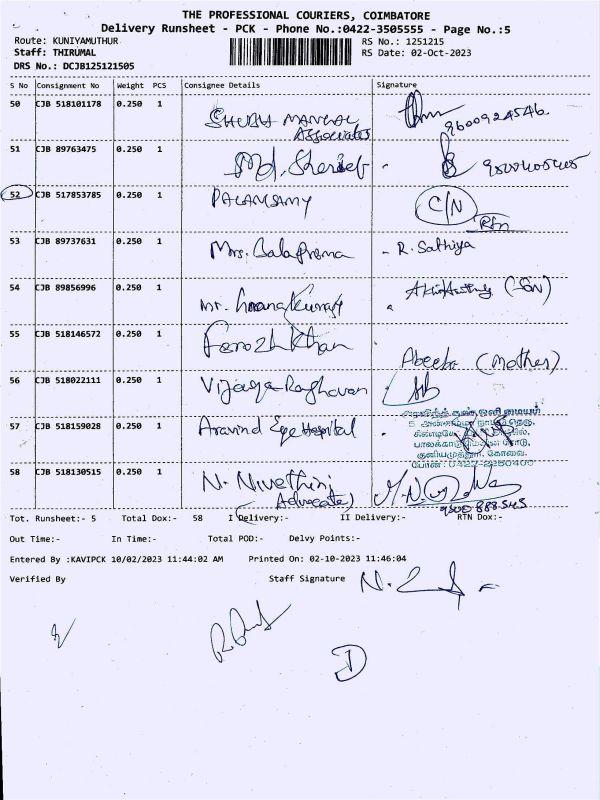 THE PROFESSIONAL COURIERS, COIMBATORE
Delivery Runsheet - PCK - Phone No.:0422-3505555 - Page No.:5
Route: KUNIYAMUTHUR RS No.: 1251215
Staff: THIRUMAL RS Date: 02-Oct-2023
DRS No.: DCJB125121505
S No Consignment No Weight PCS Consignee Details Signature
50 CJB 518101178 0.250 1 SHUBH MANGAL Associates 9600924546
51 CJB 89763475 0.250 1 Md. Sherieb
52 CJB 517853785 0.250 1 PALANISAMY C/N Rtn
53 CJB 89737631 0.250 1 Mrs. Balaprema - R. Sathiya
54 CJB 89856996 0.250 1 Mr. (SON)
55 CJB 518146572 0.250 1 Feroz Khan Abeeba (Mother)
56 CJB 518022111 0.250 1 Vijayaraghavan
57 CJB 518159028 0.250 1 Aravind Eye Hospital
குனியமுத்தூர், கோவை.
58 CJB 518130515 0.250 1 N. Nivethini (Advocate)
Tot. Runsheet:- 5 Total Dox:- 58 I Delivery:- II Delivery:- RTN Dox:-
Out Time:- In Time:- Total POD:- Delvy Points:-
Entered By :KAVIPCK 10/02/2023 11:44:02 AM Printed On: 02-10-2023 11:46:04
Verified By Staff Signature